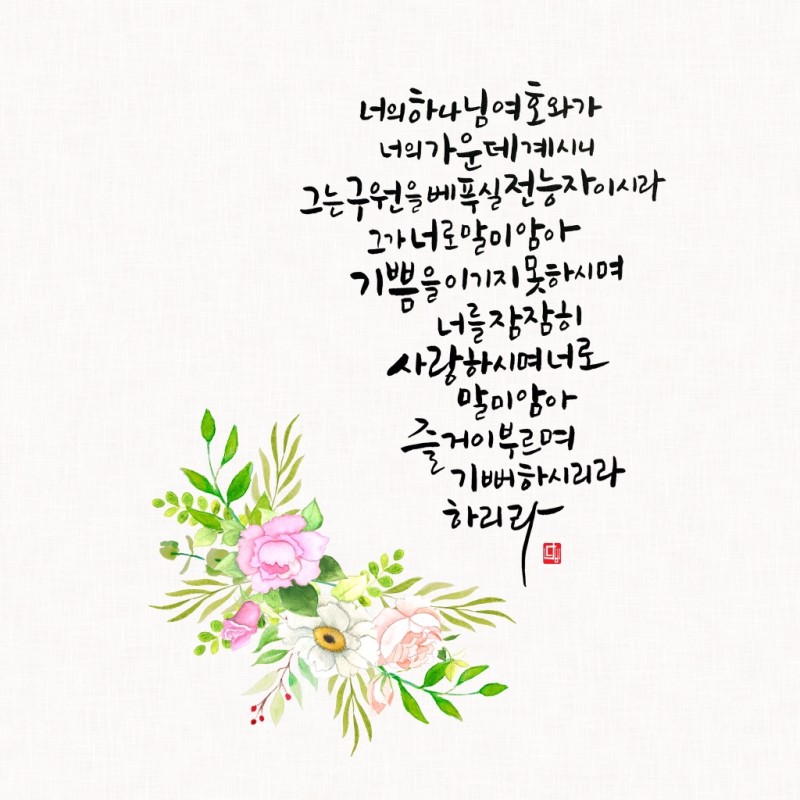 너의하나님여호와가
너의가운데계시니
그는구원을베푸실전능자이시라
그가너로말미암아
기쁨을이기지못하시며
너를잠잠히
사랑하시며너로
말미암아
즐거이부르며
기뻐하시리라
하리라